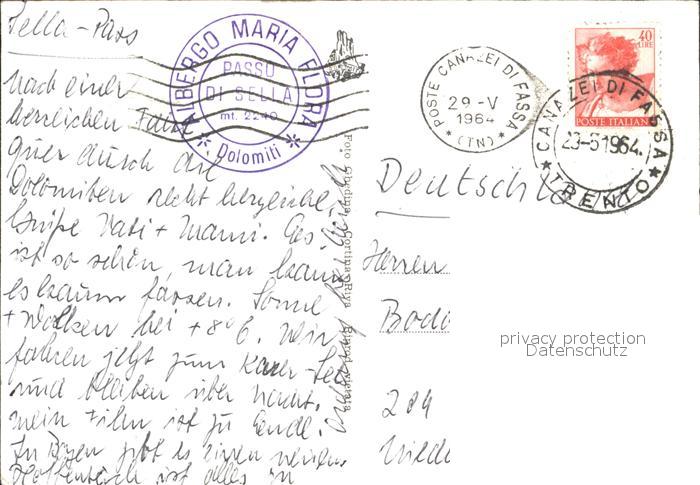 Sella-Pass
ALBERGO MARIA FLORA
PASSO
DI SELLA
mt. 2240
* Dolomiti *
POSTE CANAZEI DI FASSA
29-V
1964
* (TN) *
40
LIRE
POSTE ITALIANE
CANAZEI DI FASSA
23-5 1964.
* TRENTO *
nach einer
herrlichen Fahrt
quer durch die
Dolomiten recht herzliche
Grüße Vati + Mami. Es
ist so schön, man kann
es kaum fassen. Sonne
+ Wolken bei +8°C. Wir
fahren jetzt zum Karer-See
und bleiben über Nacht.
mein Film ist zu Ende.
In Bozen gibt es einen neuen.
Hoffentlich ist alles zu
Foto Ghedina, Cortina
Deutschland
Herren
Bodo
284
privacy protection
Datenschutz